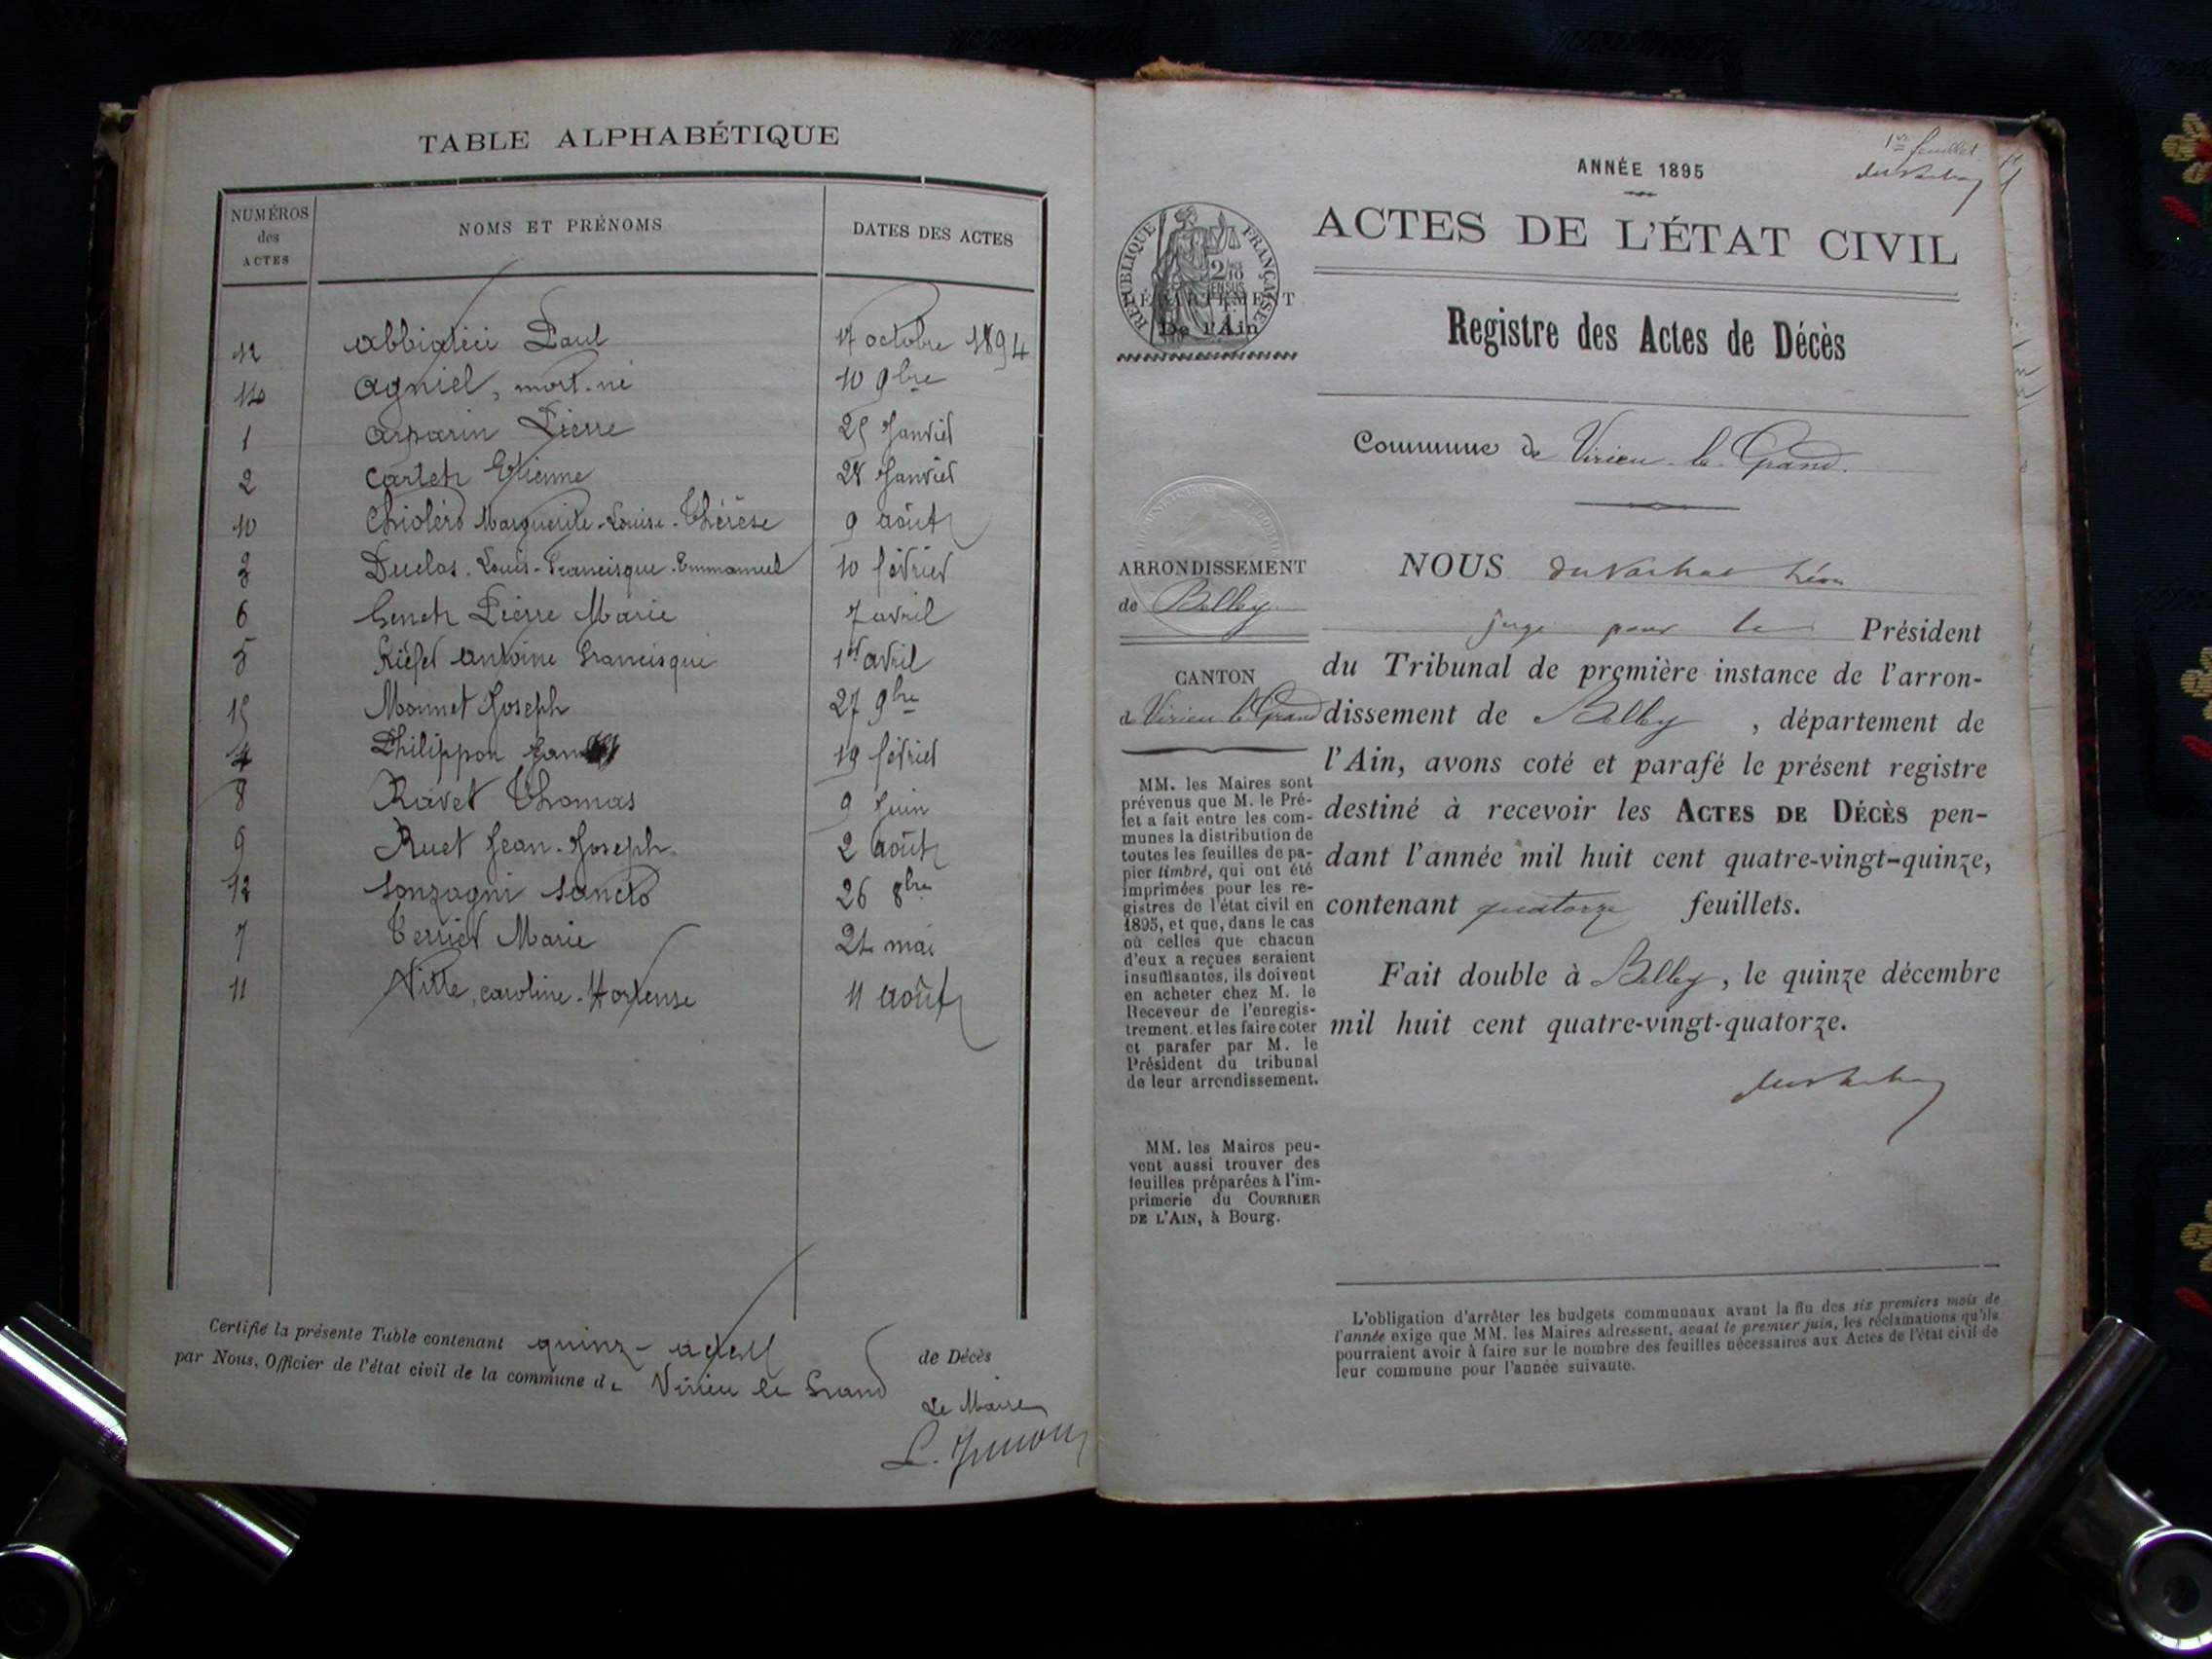 TABLE ALPHABÉTIQUE
NUMÉROS des ACTES
NOMS ET PRÉNOMS
DATES DES ACTES
12 Paul 17 octobre 1894
14 Agniel, mort-né 10 9bre
1 Arparin Pierre 25 Janvier
2 Carteh Etienne 28 Janvier
10 Marguerite-Louise-Thérèse 9 août
3 Duclos. Louis-Francisque-Emmanuel 10 février
6 Pierre Marie 7 avril
5 Antoine Francisque 1er avril
15 Monnet Joseph 27 9bre
4 Philippon 19 février
8 Ravet Thomas 9 Juin
9 Ruet Jean-Joseph 2 août
13 Sonzogni Sancto 26 8bre
7 Terrier Marie 21 mai
11 Vitte, caroline-Hortense 11 août
Certifié la présente Table contenant quinz- actes de Décès
par Nous, Officier de l'état civil de la commune de Virieu le Grand
Le Maire
1er feuillet
ANNÉE 1895
ACTES DE L'ÉTAT CIVIL
RÉPUBLIQUE FRANÇAISE
2/10 EN SUS
DÉPARTEMENT
De l'Ain
Registre des Actes de Décès
Commune de Virieu-le-Grand.
ARRONDISSEMENT
de Belley
CANTON
de Virieu le Grand
MM. les Maires sont
prévenus que M. le Pré-
fet a fait entre les com-
munes la distribution de
toutes les feuilles de pa-
pier timbré, qui ont été
imprimées pour les re-
gistres de l'état civil en
1895, et que, dans le cas
où celles que chacun
d'eux a reçues seraient
insuffisantes, ils doivent
en acheter chez M. le
Receveur de l'enregis-
trement, et les faire coter
et parafer par M. le
Président du tribunal
de leur arrondissement.
MM. les Maires peu-
vent aussi trouver des
feuilles préparées à l'im-
primerie du COURRIER
DE L'AIN, à Bourg.
NOUS Léon
juge pour le Président
du Tribunal de première instance de l'arron-
dissement de Belley, département de
l'Ain, avons coté et parafé le présent registre
destiné à recevoir les ACTES DE DÉCÈS pen-
dant l'année mil huit cent quatre-vingt-quinze,
contenant quatorze feuillets.
Fait double à Belley, le quinze décembre
mil huit cent quatre-vingt-quatorze.
L'obligation d'arrêter les budgets communaux avant la fin des six premiers mois de
l'année exige que MM. les Maires adressent, avant le premier juin, les réclamations qu'ils
pourraient avoir à faire sur le nombre des feuilles nécessaires aux Actes de l'état civil de
leur commune pour l'année suivante.